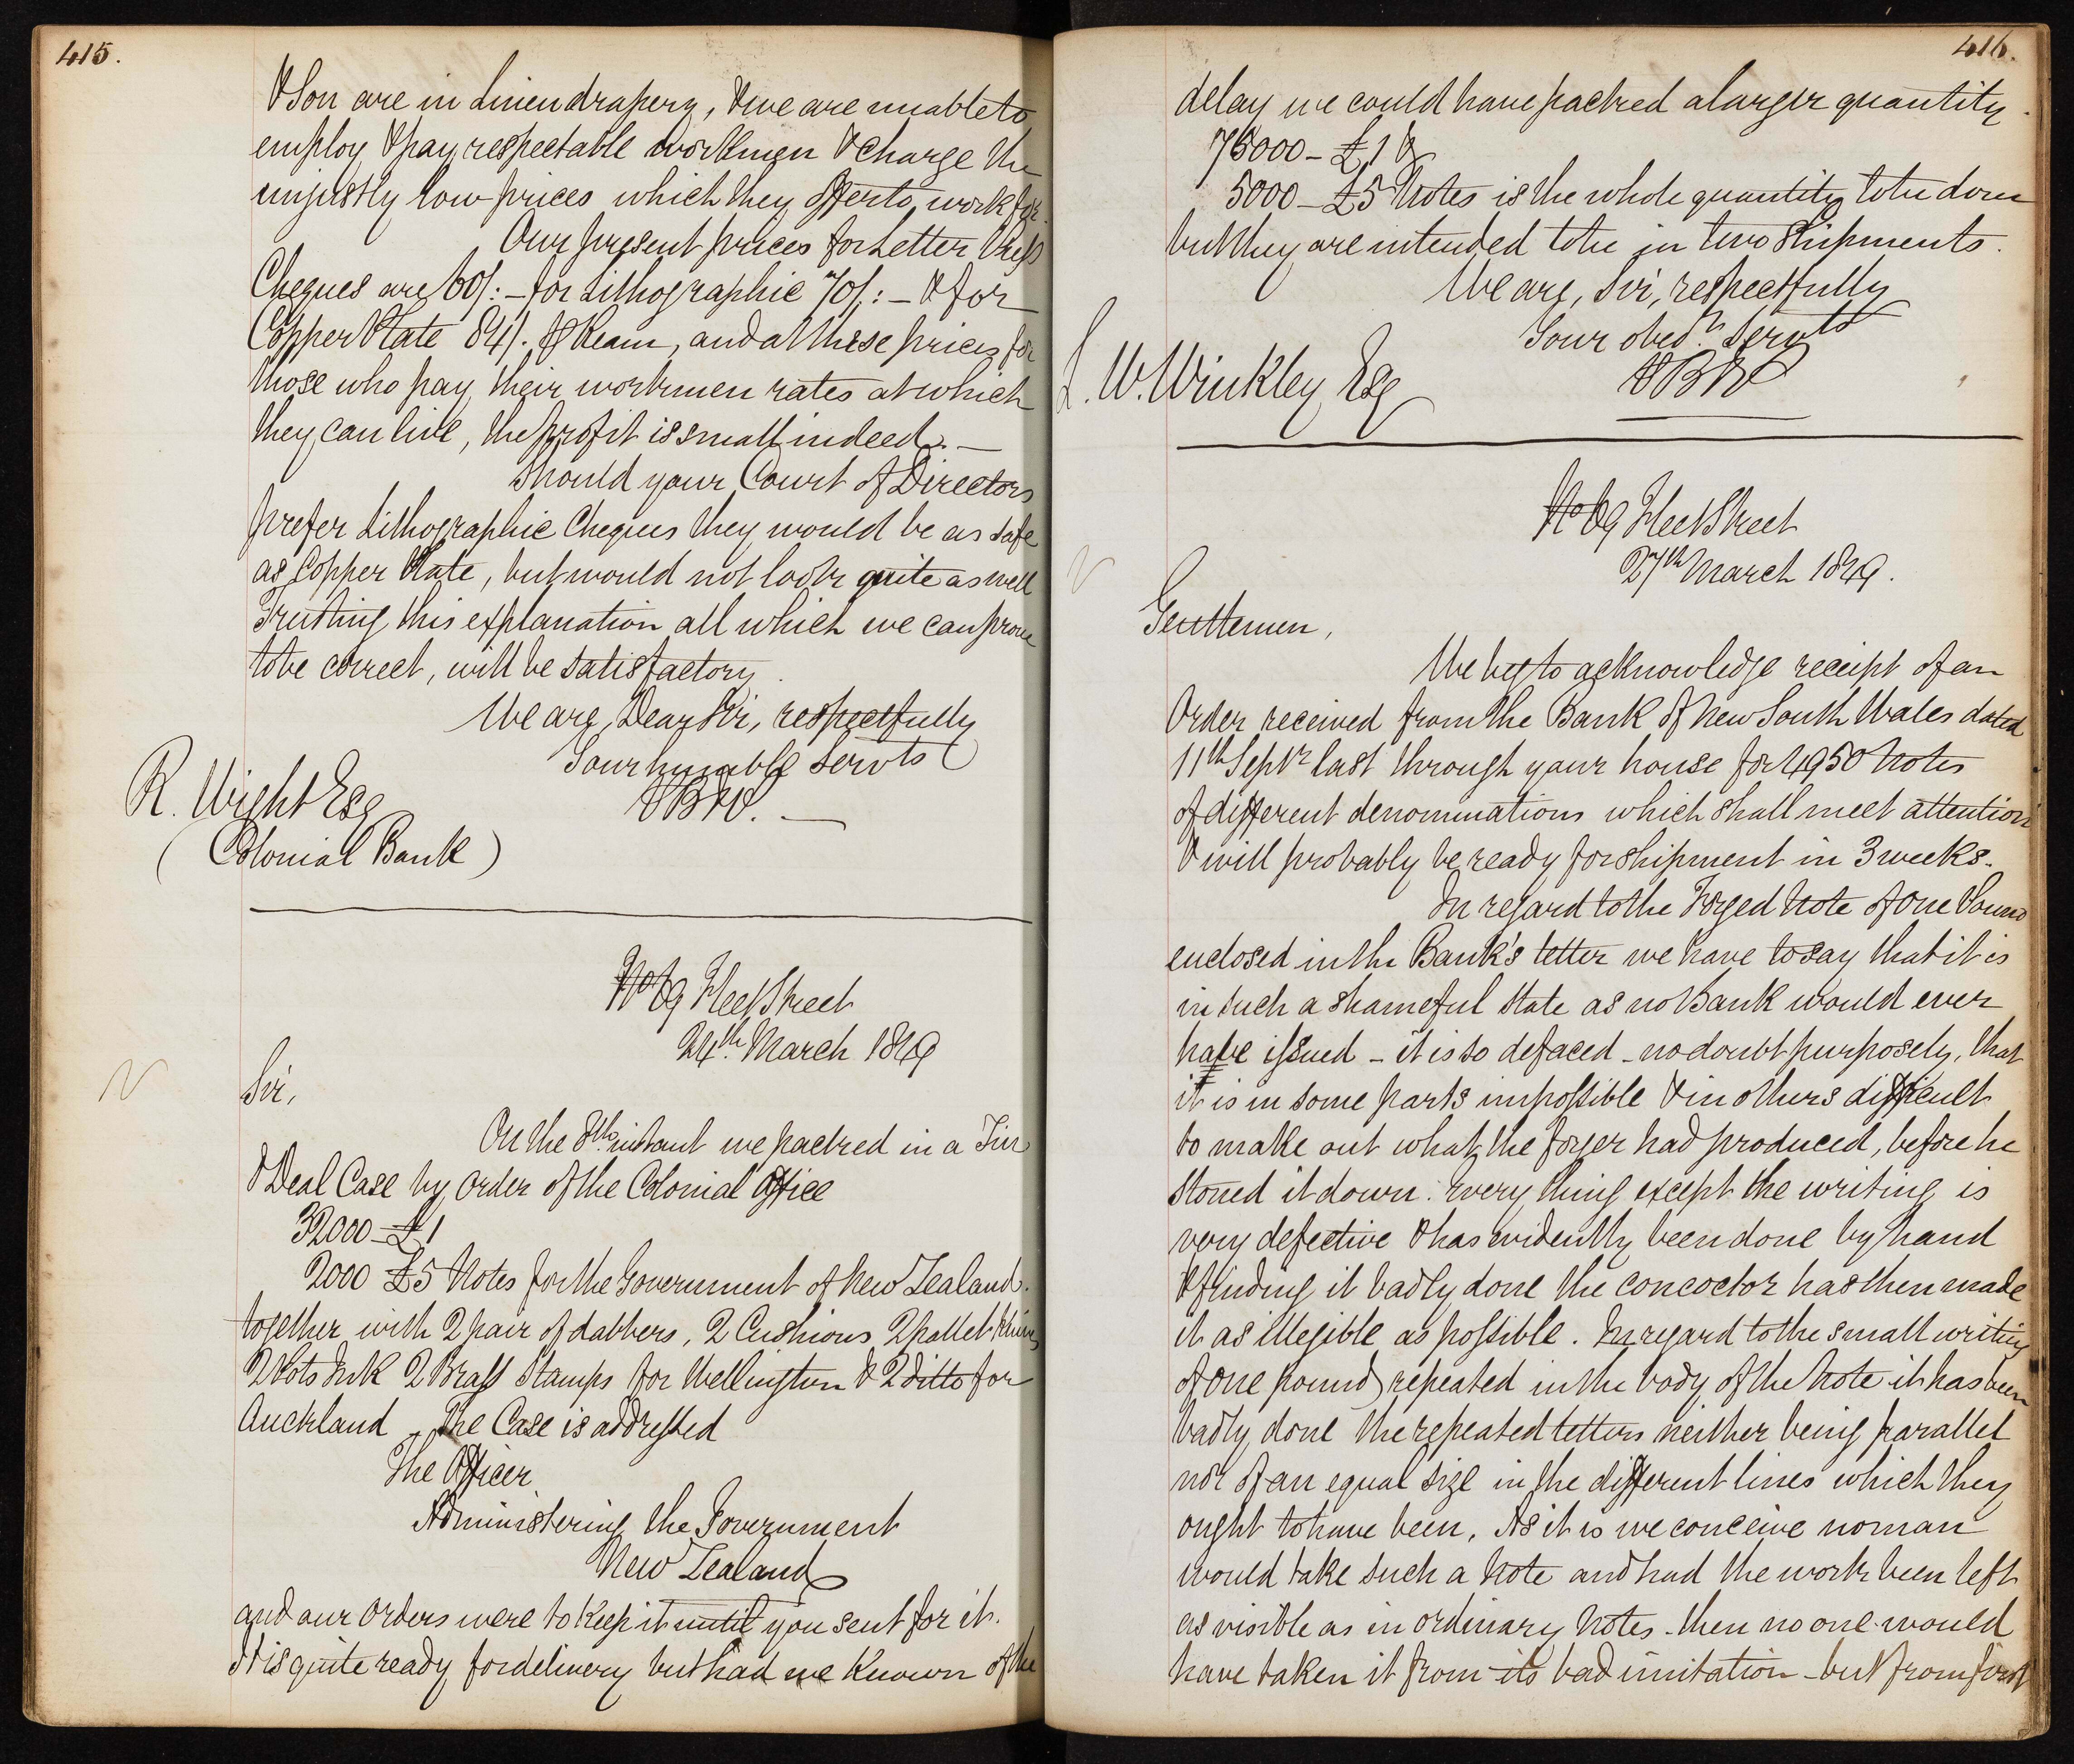 415.
& Son are in Linendrapery, & we are unable to
employ & pay respectable workmen & charge the
unjustly low prices which they offer to work for.
Our present prices for Letter Press
Cheques are 60/: - for Lithographic 70/: - & for
Copper Plate 84/. Ream, and at these prices for
those who pay their workmen rates at which
they can live, the profit is small indeed. —
Should your Court of Directors
prefer Lithographic Cheques they would be as safe
as Copper Plate, but would not look quite as well
Trusting this explanation all which we can prove
to be correct, will be satisfactory.
We are, Dear Sir, respectfully
Your humble Servts
PB&P. —
R. Wight Esq
(Colonial Bank)
No 69 Fleet Street
24th. March 1849
Sir,
On the 8th. instant we packed in a Tin
& Deal Case by order of the Colonial Office
32000 - £1
2000 £5 Notes for the Government of New Zealand.
together with 2 pair of dabbers, 2 Cushions, 2 pallet knives
2 Pots Ink 2 Brass Stamps for Wellington & 2 ditto for
Auckland - The Case is addressed
The Officer
Administering the Government
New Zealand
and our orders were to keep it until you sent for it.
It is quite ready for delivery but had we known of the
416.
delay we could have packed a larger quantity.
75000 - £1 &
5000 - £5 Notes is the whole quantity to be done
but they are intended to be in two Shipments.
We are, Sir, respectfully
Your obedt. servts
PB&P
L. W. Winkley Esq
No 69 Fleet Street
27th March 1849.
Gentlemen,
We beg to acknowledge receipt of an
Order received from the Bank of New South Wales dated
11th Septr last through your house for 4950 Notes
of different denominations which shall meet attention
& will probably be ready for shipment in 3 weeks.
In regard to the Forged Note of One Pound
enclosed in the Bank's letter we have to say that it is
in such a shameful state as no Bank would ever
have issued - it is so defaced - no doubt purposely, that
it is in some parts impossible & in others difficult
to make out what the forger had produced, before he
stoned it down. Every thing except the writing is
very defective & has evidently been done by hand
& finding it badly done the concoctor has then made
it as illegible as possible. In regard to the small writing
of one pound) repeated in the body of the Note it has been
badly done the repeated letters neither being parallel
nor of an equal size in the different lines which they
ought to have been. As it is we conceive no man
would take such a Note and had the work been left
as visible as in ordinary Notes - then no one would
have taken it from its bad imitation - but from first